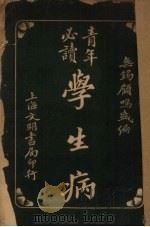 無錫顧鳴盛編
青年
必讀
學生病
上海文明書局印行